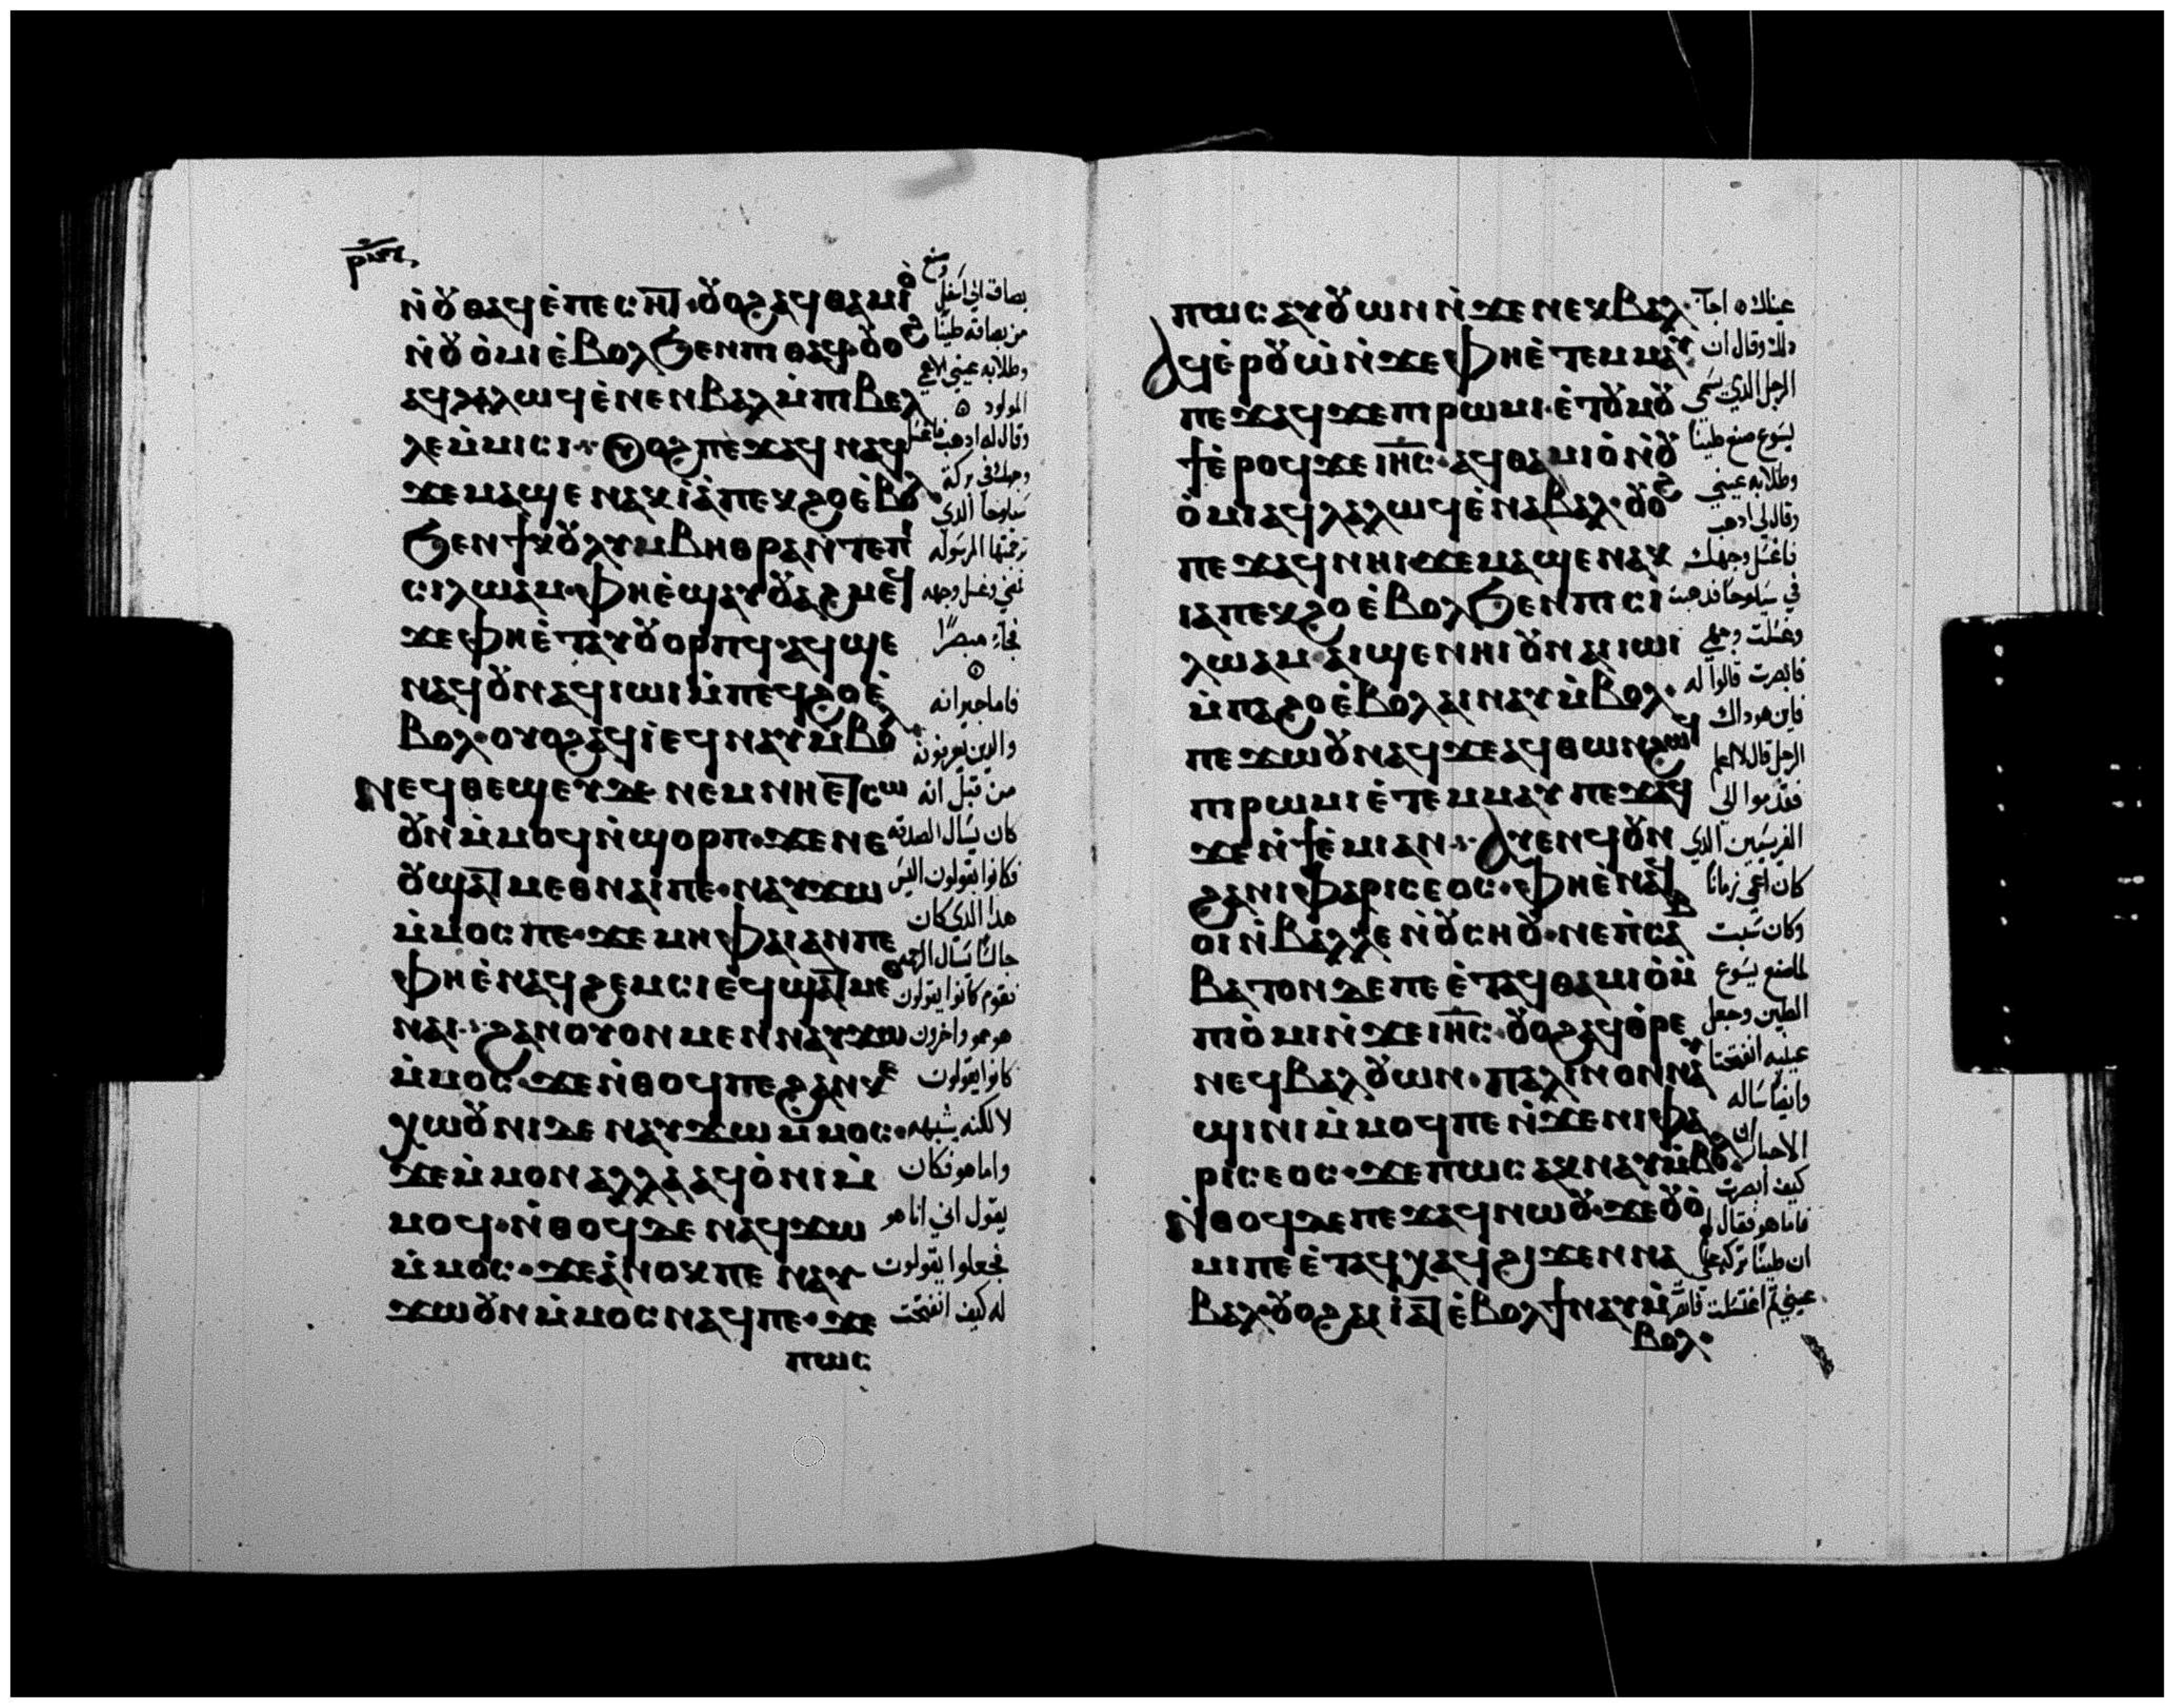 ⲣ̅ⲛ̅ⲋ̅
ⲛ̀ȣⲑⲁϥ ⲉ̀ⲡⲉⲥⲏⲧ ⲟⲩⲟϩ ⲁϥⲑⲁⲙⲓⲟ̀
ⲛ̀ȣⲟ̀ⲙⲓ ⲉ̀ⲃⲟⲗ ϧⲉⲛ ⲡⲓⲑⲁϥ ȣⲟϩ
ⲁϥⲗⲁⲗⲱϥ ⲉ̀ⲛⲉⲛⲃⲁⲗ ⲙ̀ⲡⲓⲃⲉⲗ
ⲗⲉ ⲙ̀ⲙⲓⲥⲓ ⲟⲩⲟϩ ⲡⲉϫⲁϥ ⲛⲁϥ
ϫⲉ ⲙⲁϣⲉ ⲛⲁⲕ ⲓⲁ̀ ⲡⲉⲕϩⲟ ⲉ̀ⲃⲟⲗ
ϧⲉⲛ ϯⲕȣⲗⲩⲙⲃⲏⲑⲣⲁ ⲛ̀ⲧⲉ ⲡⲓ
ⲥⲓⲗⲱⲁⲙ· ⲫⲏⲉ̀ϣⲁⲩȣⲁϩⲙⲉϥ
ϫⲉ ⲫⲏⲉ̀ⲧⲁⲩȣⲟⲣⲡϥ· ⲁϥϣⲉ
ⲛⲁϥ ȣⲛ ⲁϥⲓⲱⲓ ⲙ̀ⲡⲉϥϩⲟ ⲉ̀
ⲃⲟⲗ· ⲟⲩⲟϩ ⲁϥⲓ̀ ⲉϥⲛⲁⲩ ⲙ̀ⲃⲟⲗ
ⲛⲉϥⲑⲉϣⲉⲩ ⲇⲉ ⲛⲉⲙ ⲛⲏⲉⲧⲥⲱ
ȣⲛ ⲙ̀ⲙⲟϥ ⲛ̀ϣⲟⲣⲡ· ϫⲉ ⲛⲉ
ȣϣⲁⲧⲙⲉⲑⲛⲁⲓ ⲡⲉ· ⲛⲁⲩϫⲱ
ⲙ̀ⲙⲟⲥ ⲡⲉ· ϫⲉ ⲙⲏ ⲫⲁⲓ ⲁⲛ ⲡⲉ
ⲫⲏⲉ̀ⲛⲁϥϩⲉⲙⲥⲓ ⲉϥϣⲁⲧⲙⲉⲑ
ⲛⲁⲓ· ϩⲁⲛⲟⲩⲟⲛ ⲙⲉⲛ ⲛⲁⲩϫⲱ
ⲙ̀ⲙⲟⲥ ϫⲉ ⲛ̀ⲑⲟϥ ⲡⲉ ϩⲁⲛⲕⲉ
ⲭⲱȣⲛⲓ ⲇⲉ ⲛⲁⲩϫⲱ ⲙ̀ⲙⲟⲥ·
ϫⲉ ⲙ̀ⲙⲟⲛ ⲁⲗⲗⲁ ⲁϥⲟ̀ⲛⲓ ⲙ̀
ⲙⲟϥ· ⲛ̀ⲑⲟϥ ⲇⲉ ⲛⲁϥϫⲱ
ⲙ̀ⲙⲟⲥ· ϫⲉ ⲁ̀ⲛⲟⲕ ⲡⲉ ⲛⲁⲩ
ϫⲱ ȣⲛ ⲙ̀ⲙⲟⲥ ⲛⲁϥ ⲡⲉ· ϫⲉ
ⲡⲱⲥ
وصنع
بصاق الي اسفل
من بصاقه طينا
وطلا به عيني الاعمي
المولود
وقال له ادهب فاغسل
وجهك في بركة
سيلوحا الدي
ترجمتها المرسوله
فمضي وغسل وجهه
فجاء مبصرا
فاما جيرانه
والدين يعرفونه
من قبل انه
كان يسال الصدقه
فكانوا يقولون اليس
هدا الدي كان
جالسا يسال الرحمه
فقوم كانوا يقولون
هو هو واخرون
كانوا يقولون
لا لكنه يشبهه
واما هو فكان
يقول اني انا هو
فجعلوا يقولون
له كيف انفتحت
ⲡⲱⲥ ⲁⲩȣⲱⲛ ⲛ̀ϫⲉ ⲛⲉⲕⲃⲁⲗ·
ⲁϥⲉ̀ⲣȣⲱ̀ ⲛ̀ϫⲉ ⲫⲏⲉ̀ⲧⲉⲙⲙⲁⲩ
ⲡⲉϫⲁϥ ϫⲉ ⲡⲓⲣⲱⲙⲓ· ⲉ̀ⲧȣⲙȣ
ϯ ⲉ̀ⲣⲟϥ ϫⲉ ⲓⲏ̅ⲥ̅· ⲁϥⲑⲁⲙⲓⲟ̀ ⲛ̀ȣ
ⲟ̀ⲙⲓ ⲁϥⲗⲁⲗⲱϥ ⲉ̀ⲛⲁⲃⲁⲗ· ȣⲟϩ
ⲡⲉϫⲁϥ ⲛⲏⲓ ϫⲉ ⲙⲁϣⲉ ⲛⲁⲕ
ⲓⲁ ⲡⲉⲕϩⲟ ⲉ̀ⲃⲟⲗ ϧⲉⲛ ⲡⲓⲥⲓ
ⲗⲱⲁⲙ· ⲁⲓϣⲉ ⲛⲏⲓ ȣⲛ ⲁⲓⲓⲱⲓ
ⲙ̀ⲡⲁϩⲟ ⲉ̀ⲃⲟⲗ ⲁⲓⲛⲁⲩ ⲙ̀ⲃⲟⲗ·
ⲡⲉϫⲱȣ ⲛⲁϥ ϫⲉ ⲁϥⲑⲱⲛ ϩⲱϥ
ⲡⲓⲣⲱⲙⲓ ⲉ̀ⲧⲉⲙⲙⲁⲩ ⲡⲉϫⲁϥ
ϫⲉ ⲛ̀ϯⲉ̀ⲙⲓ ⲁⲛ· ⲁⲩⲉⲛϥ ȣⲛ
ϩⲁ ⲛⲓⲫⲁⲣⲓⲥⲉⲟⲥ· ⲫⲏⲉ̀ⲛⲁϥ
ⲟⲓ ⲛ̀ⲃⲉⲗⲗⲉ ⲛ̀ȣⲥⲏȣ· ⲛⲉ ⲡ̀ⲥⲁⲃ
ⲃⲁⲧⲟⲛ ⲇⲉ ⲡⲉ ⲉ̀ⲧⲁϥⲑⲁⲙⲓⲟ̀ ⲙ̀
ⲡⲓⲟ̀ⲙⲓ ⲛ̀ϫⲉ ⲓⲏ̅ⲥ̅· ȣⲟϩ ⲁϥⲑⲣⲉ
ⲛⲉϥⲃⲁⲗ ȣⲱⲛ· ⲡⲁⲗⲓⲛ ⲟⲛ ⲛⲁⲩ
ϣⲓⲛⲓ ⲙ̀ⲙⲟϥ ⲡⲉ ⲛ̀ϫⲉ ⲛⲓⲫⲁ
ⲣⲓⲥⲉⲟⲥ· ϫⲉ ⲡⲱⲥ ⲁⲕⲛⲁⲩ ⲙ̀ⲃⲟⲗ
ⲛ̀ⲑⲟϥ ⲇⲉ ⲡⲉϫⲁϥ ⲛⲱȣ· ϫⲉ ȣⲟ̀
ⲙⲓ ⲡⲉ ⲉ̀ⲧⲁϥⲭⲁϥ ϩⲓϫⲉⲛ ⲛⲁ
ⲃⲁⲗ· ȣⲟϩ ⲁⲓⲓⲁⲧ ⲉ̀ⲃⲟⲗ ϯⲛⲁⲩ ⲙ̀
ⲃⲟⲗ·
عيناك اجاب
دلك وقال ان
الرجل الدي يسمي
يسوع صنع طينا
وطلا به عيني
وقال لي ادهب
فاغسل وجهك
في سيلوحا فدهبت
وغسلت وجهي
فابصرت قالوا له
فاين هو داك
الرجل قال لا اعلم
فقدموا الي
الفريسيين الدي
كان اعمي زمانا
وكان سبت
لما صنع يسوع
الطين وجعل
عينيه انفتحتا
وايضا ساله
الاحبار
كيف ابصرت
فاما هو فقال لهم
ان طينا تركه علي
عيني ثم اغتسلت